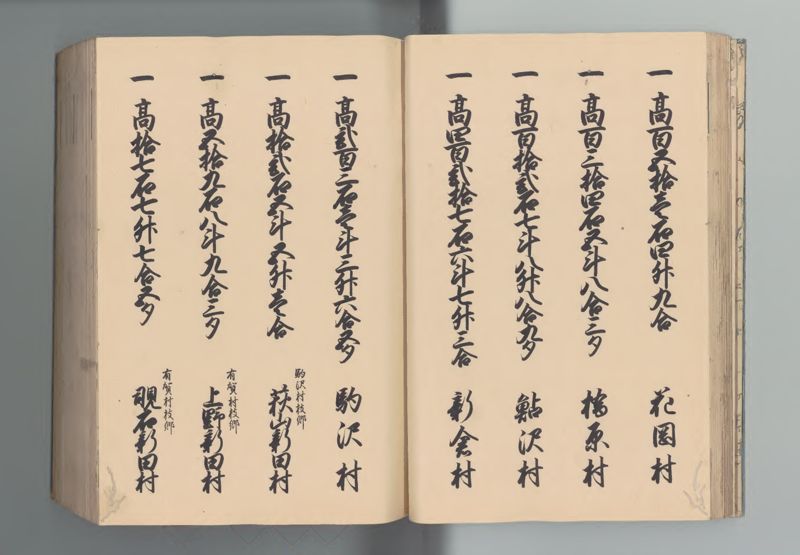 一 高百五拾壱石四升九合 花岡村
一 高百三拾四石五斗八合三夕 橋原村
一 高百拾弐石七斗八升八合九夕 鮎沢村
一 高四百弐拾七石六斗七升三合 新倉村
一 高弐百二石壱斗三升六合五夕 駒沢村
駒沢村枝郷
一 高拾弐石五斗五升壱合 萩山新田村
有賀村枝郷
一 高五拾九石八斗九合三夕 上野新田村
有賀村枝郷
一 高拾七石七升七合五夕 覗石新田村